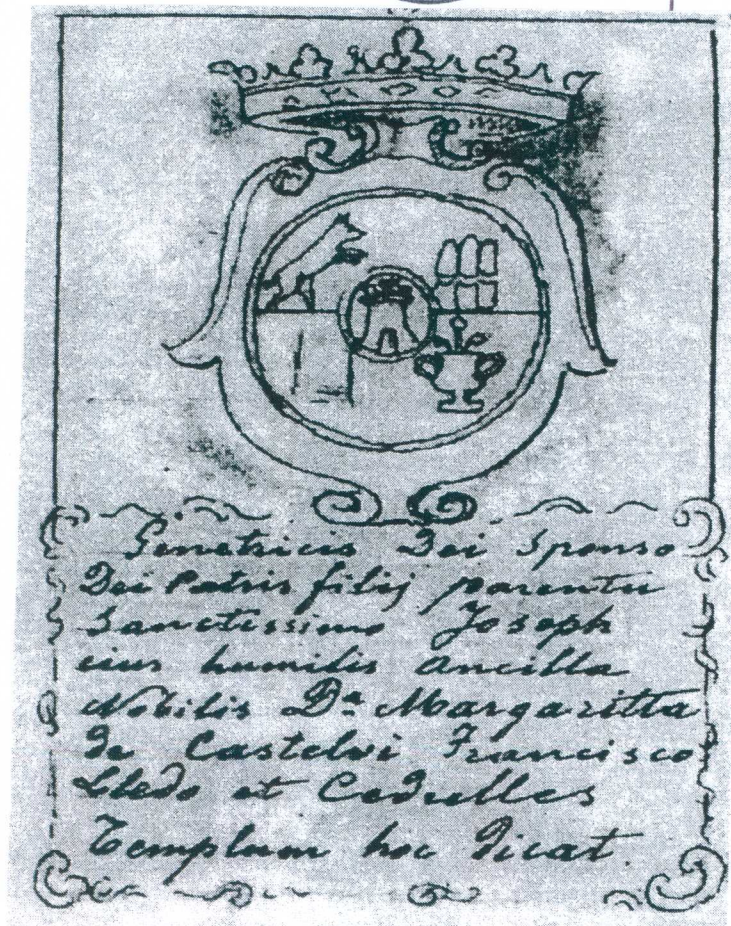 Genetricis Dei Sponso
Dei Patris filij parentu
Sanctissimo Joseph
eius humilis Ancilla
Nobilis Dª Margaritta
de Castelvi Francisco
Lledo et Cedrelles
Templum hoc dicat.